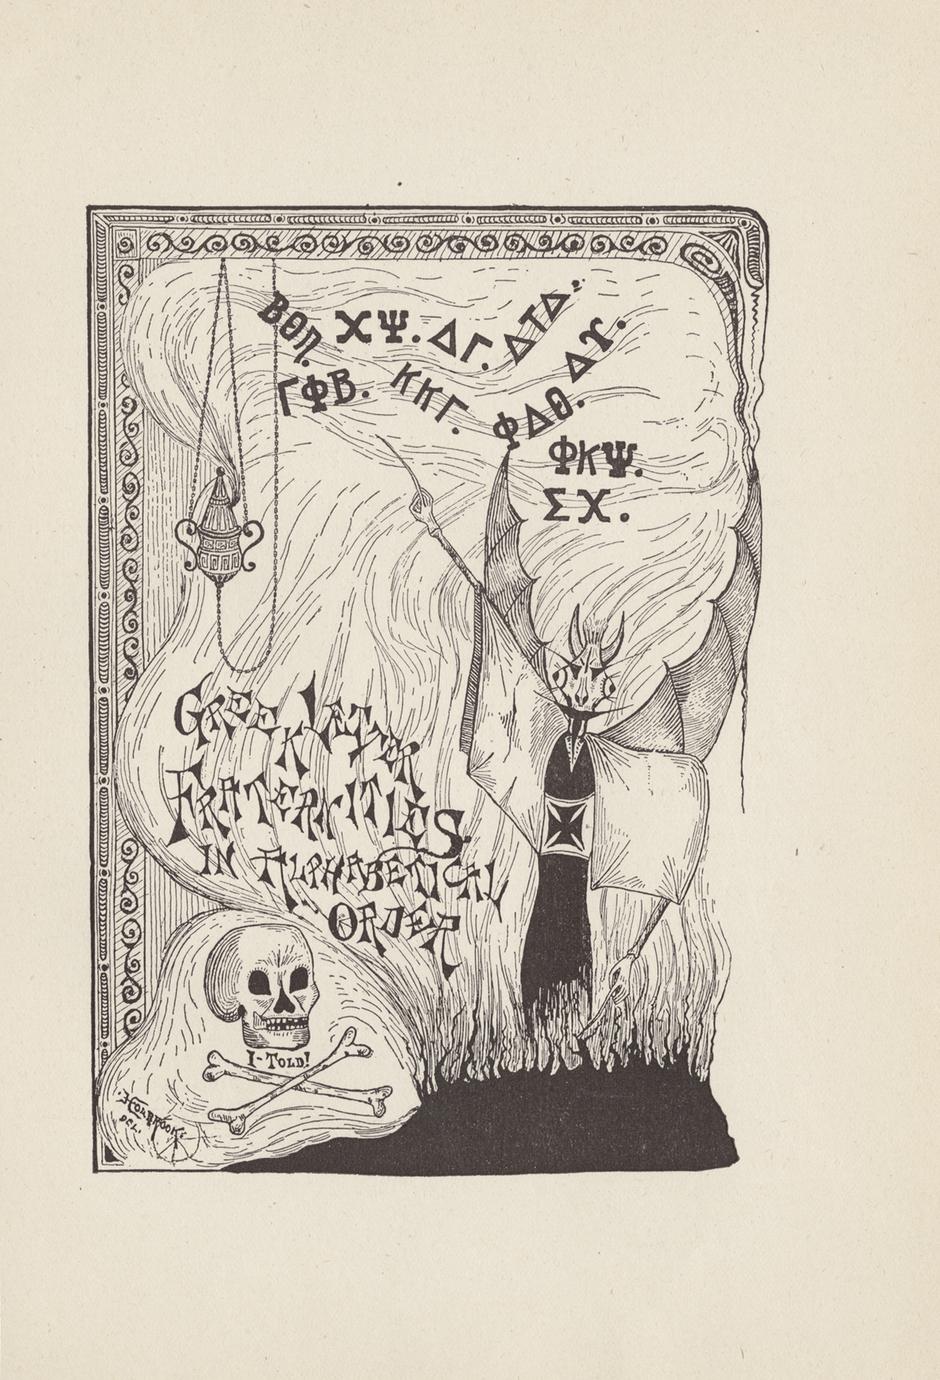 ΒΘΠ. ΧΨ. ΔΓ. ΔΤΔ.
ΔΥ.
ΓΦΒ. ΚΚΓ. ΦΔΘ.
ΦΚΨ.
ΣΧ.
GREEK LETTER
FRATERNITIES
IN ALPHABETICAL
ORDER
I-TOLD!
HOLBROOK
DEL.